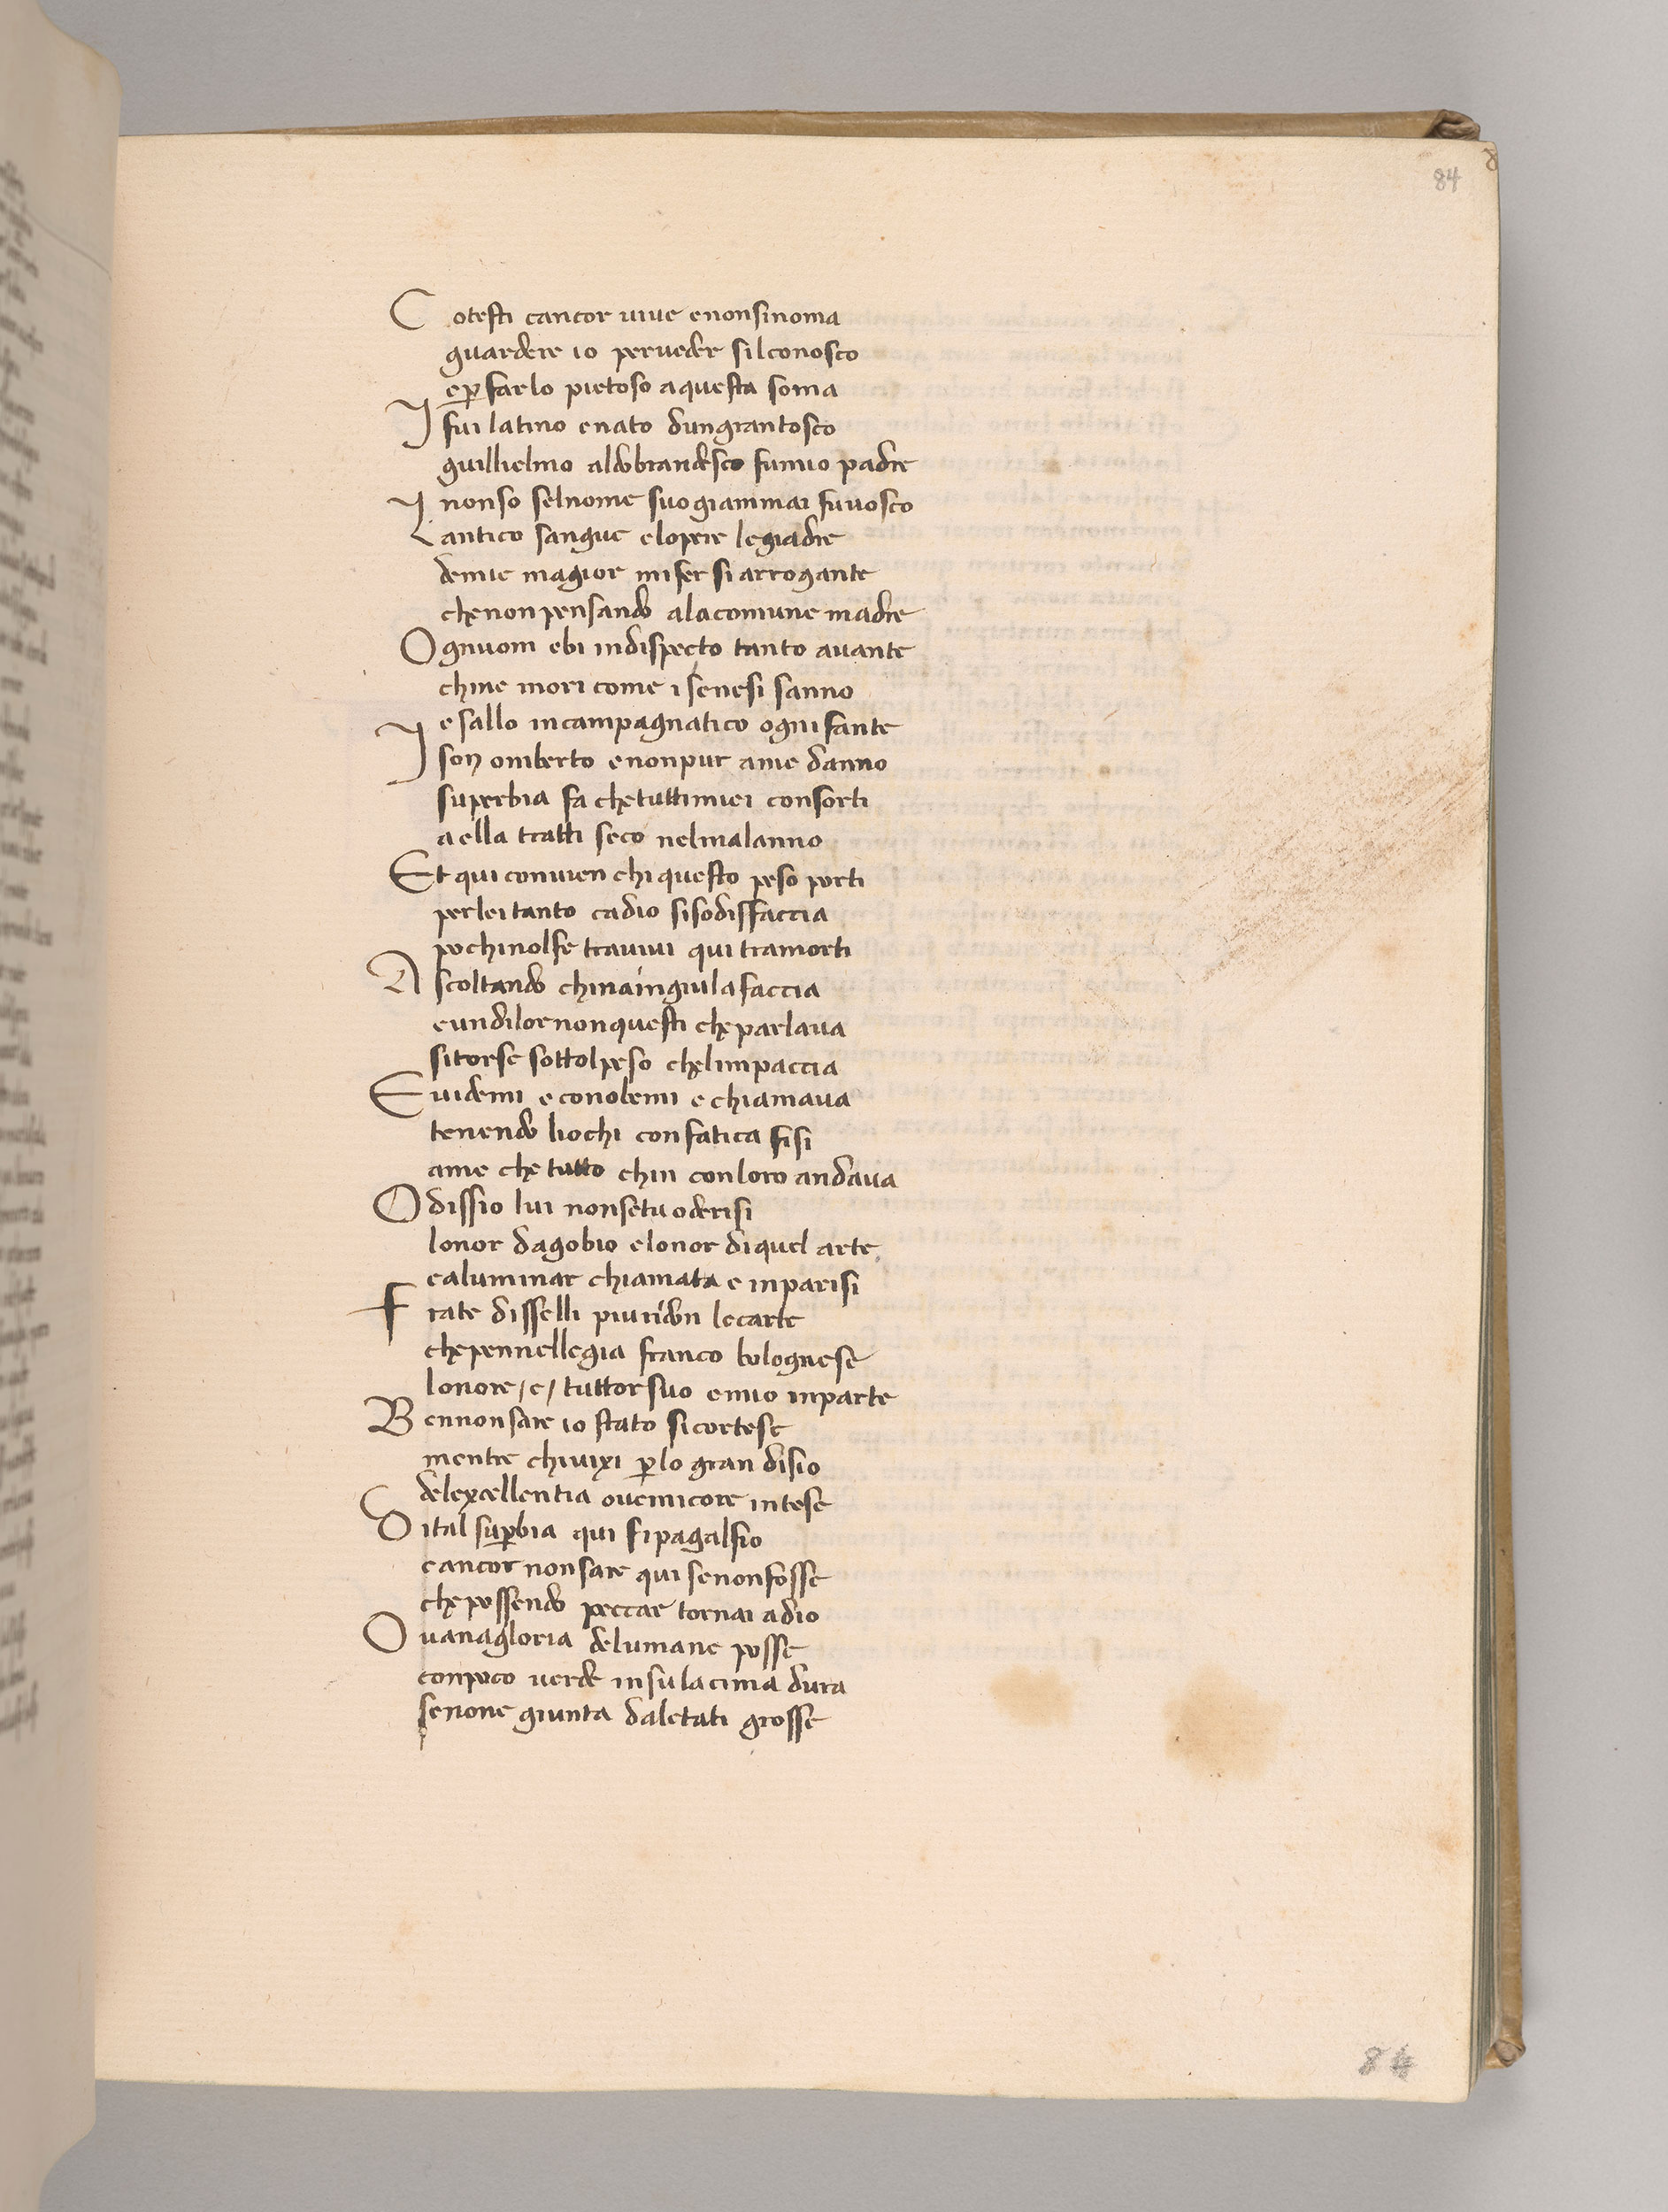 84
Cotesti cancor uiue enonsinoma
guardere io perueder silconosco
eꝑ farlo pietoso aquesta soma
I fui latino enato dungrantosco
guillielmo aldobrandesco fumio padre
I nonso selnome suo giammai fu uosco
Lantico sangue elopere legiadre
demie magior mi fer si arrogante
che non pensando alacomune madre
Ognuom ebi indispecto tanto auante
chine mori come i senesi sanno
e sallo incampagnatico ogni fante
I son omberto enonpur ame danno
superbia fa che tutti miei consorti
a ella tratti seco nelmalanno
Et qui conuien chi questo peso porti
per lei tanto cadio sisodisfaccia
pochinolfe trauiui qui tramorti
Ascoltando chinaingiu la faccia
eundilor non questi che parlaua
si torse sottolpeso chelimpaccia
Euidemi e conobemi e chiamaua
tenendo liochi con fatica fisi
ame che tutto chin con loro andaua
O dissio lui nonsetu oderisi
lonor dagobio elonor di quel arte
caluminar chiamata e in parisi
Frate disselli piu ridon lecarte
che pennellegia franco bolognese
lonore /e/ tuttor suo e mio inparte
Ben non sare io stato si cortese
mentre chiuixi ꝑ lo gran disio
delexcellentia oue mi core intese
Di tal suꝑbia qui si pagalfio
e ancor non sare qui senonfosse
che possendo peccar tornai adio
O uanagloria delumane posse
conpoco uerde insu la cima dura
senone giunta daletati grosse
84